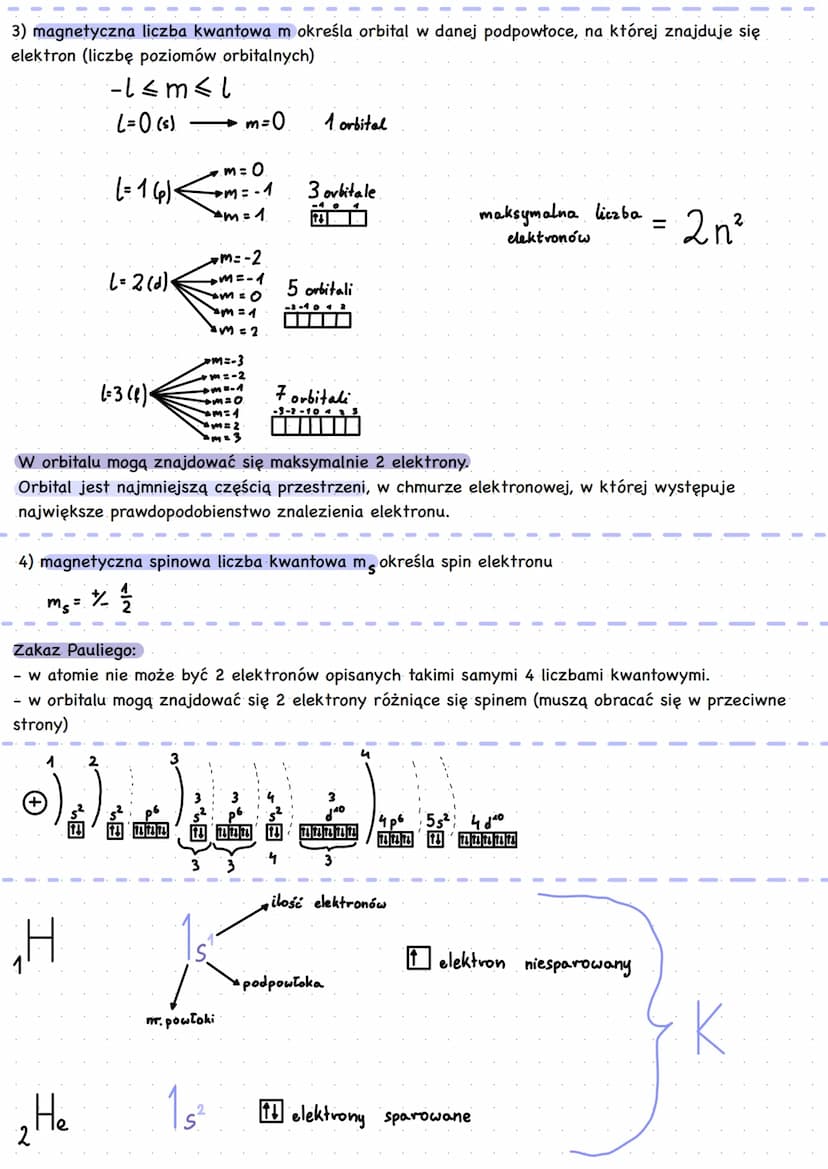 3) magnetyczna liczba kwantowa m określa orbital w danej podpowłoce, na której znajduje się
elektron (liczbę poziomów orbitalnych)
-l ⩽ m ⩽ l
l=0 (s) → m=0 1 orbital
l=1 (p)
m=0
m=-1
m=1
3 orbitale
-1 0 1
↑↓
maksymalna liczba
elektronów = 2n²
l=2 (d)
m=-2
m=-1
m=0
m=1
m=2
5 orbitali
-2 -1 0 1 2
l=3 (f)
m=-3
m=-2
m=-1
m=0
m=1
m=2
m=3
7 orbitali
-3 -2 -1 0 1 2 3
W orbitalu mogą znajdować się maksymalnie 2 elektrony.
Orbital jest najmniejszą częścią przestrzeni, w chmurze elektronowej, w której występuje
największe prawdopodobienstwo znalezienia elektronu.
4) magnetyczna spinowa liczba kwantowa mₛ określa spin elektronu
mₛ = +/- 1/2
Zakaz Pauliego:
- w atomie nie może być 2 elektronów opisanych takimi samymi 4 liczbami kwantowymi.
- w orbitalu mogą znajdować się 2 elektrony różniące się spinem (muszą obracać się w przeciwne
strony)
1 2 3 4
+ s² s² p⁶ 3 s² 3 p⁶ 4 s² 3 d¹⁰ 4p⁶ 5s² 4d¹⁰
↑↓ ↑↓ ↑↓↑↓↑↓ ↑↓ ↑↓↑↓↑↓ ↑↓ ↑↓↑↓↑↓↑↓↑↓ ↑↓↑↓↑↓ ↑↓ ↑↓↑↓↑↓↑↓↑↓
3 3 4 3
ilość elektronów
₁H 1s¹ ↑ elektron niesparowany
podpowłoka
nr. powłoki
K
₂He 1s² ↑↓ elektrony sparowane